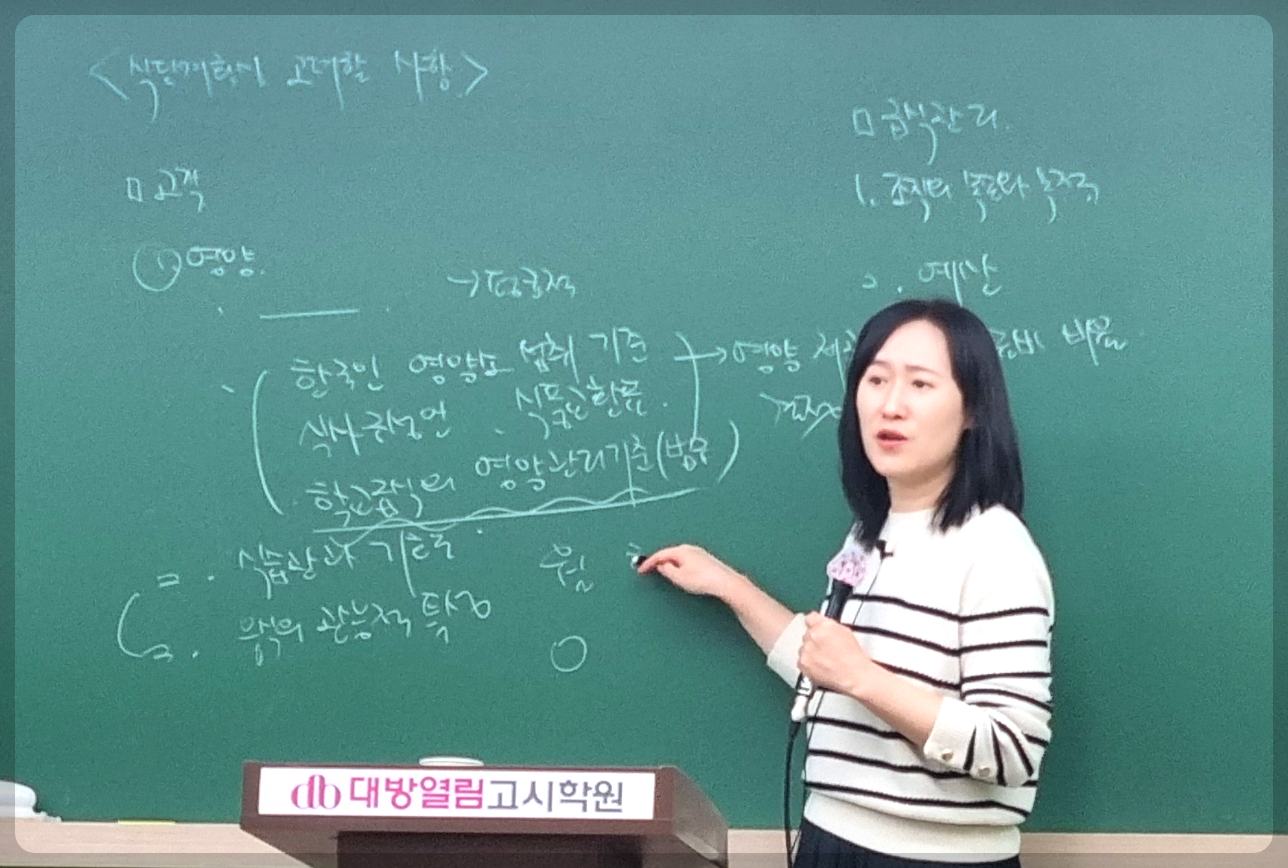 <식단계획시 고려할 사항>
□ 고객
① 영양.
→ 탄력적
한국인 영양소 섭취 기준
식사구성안 · 식품교환표.
학교급식의 영양관리기준(법규)
→ 영양 비율
2. 식습관과 기호도
3. 음식의 관능적 특성
□ 급식관리.
1. 조직의 목표와 목적
2. 예산
db 대방열림고시학원